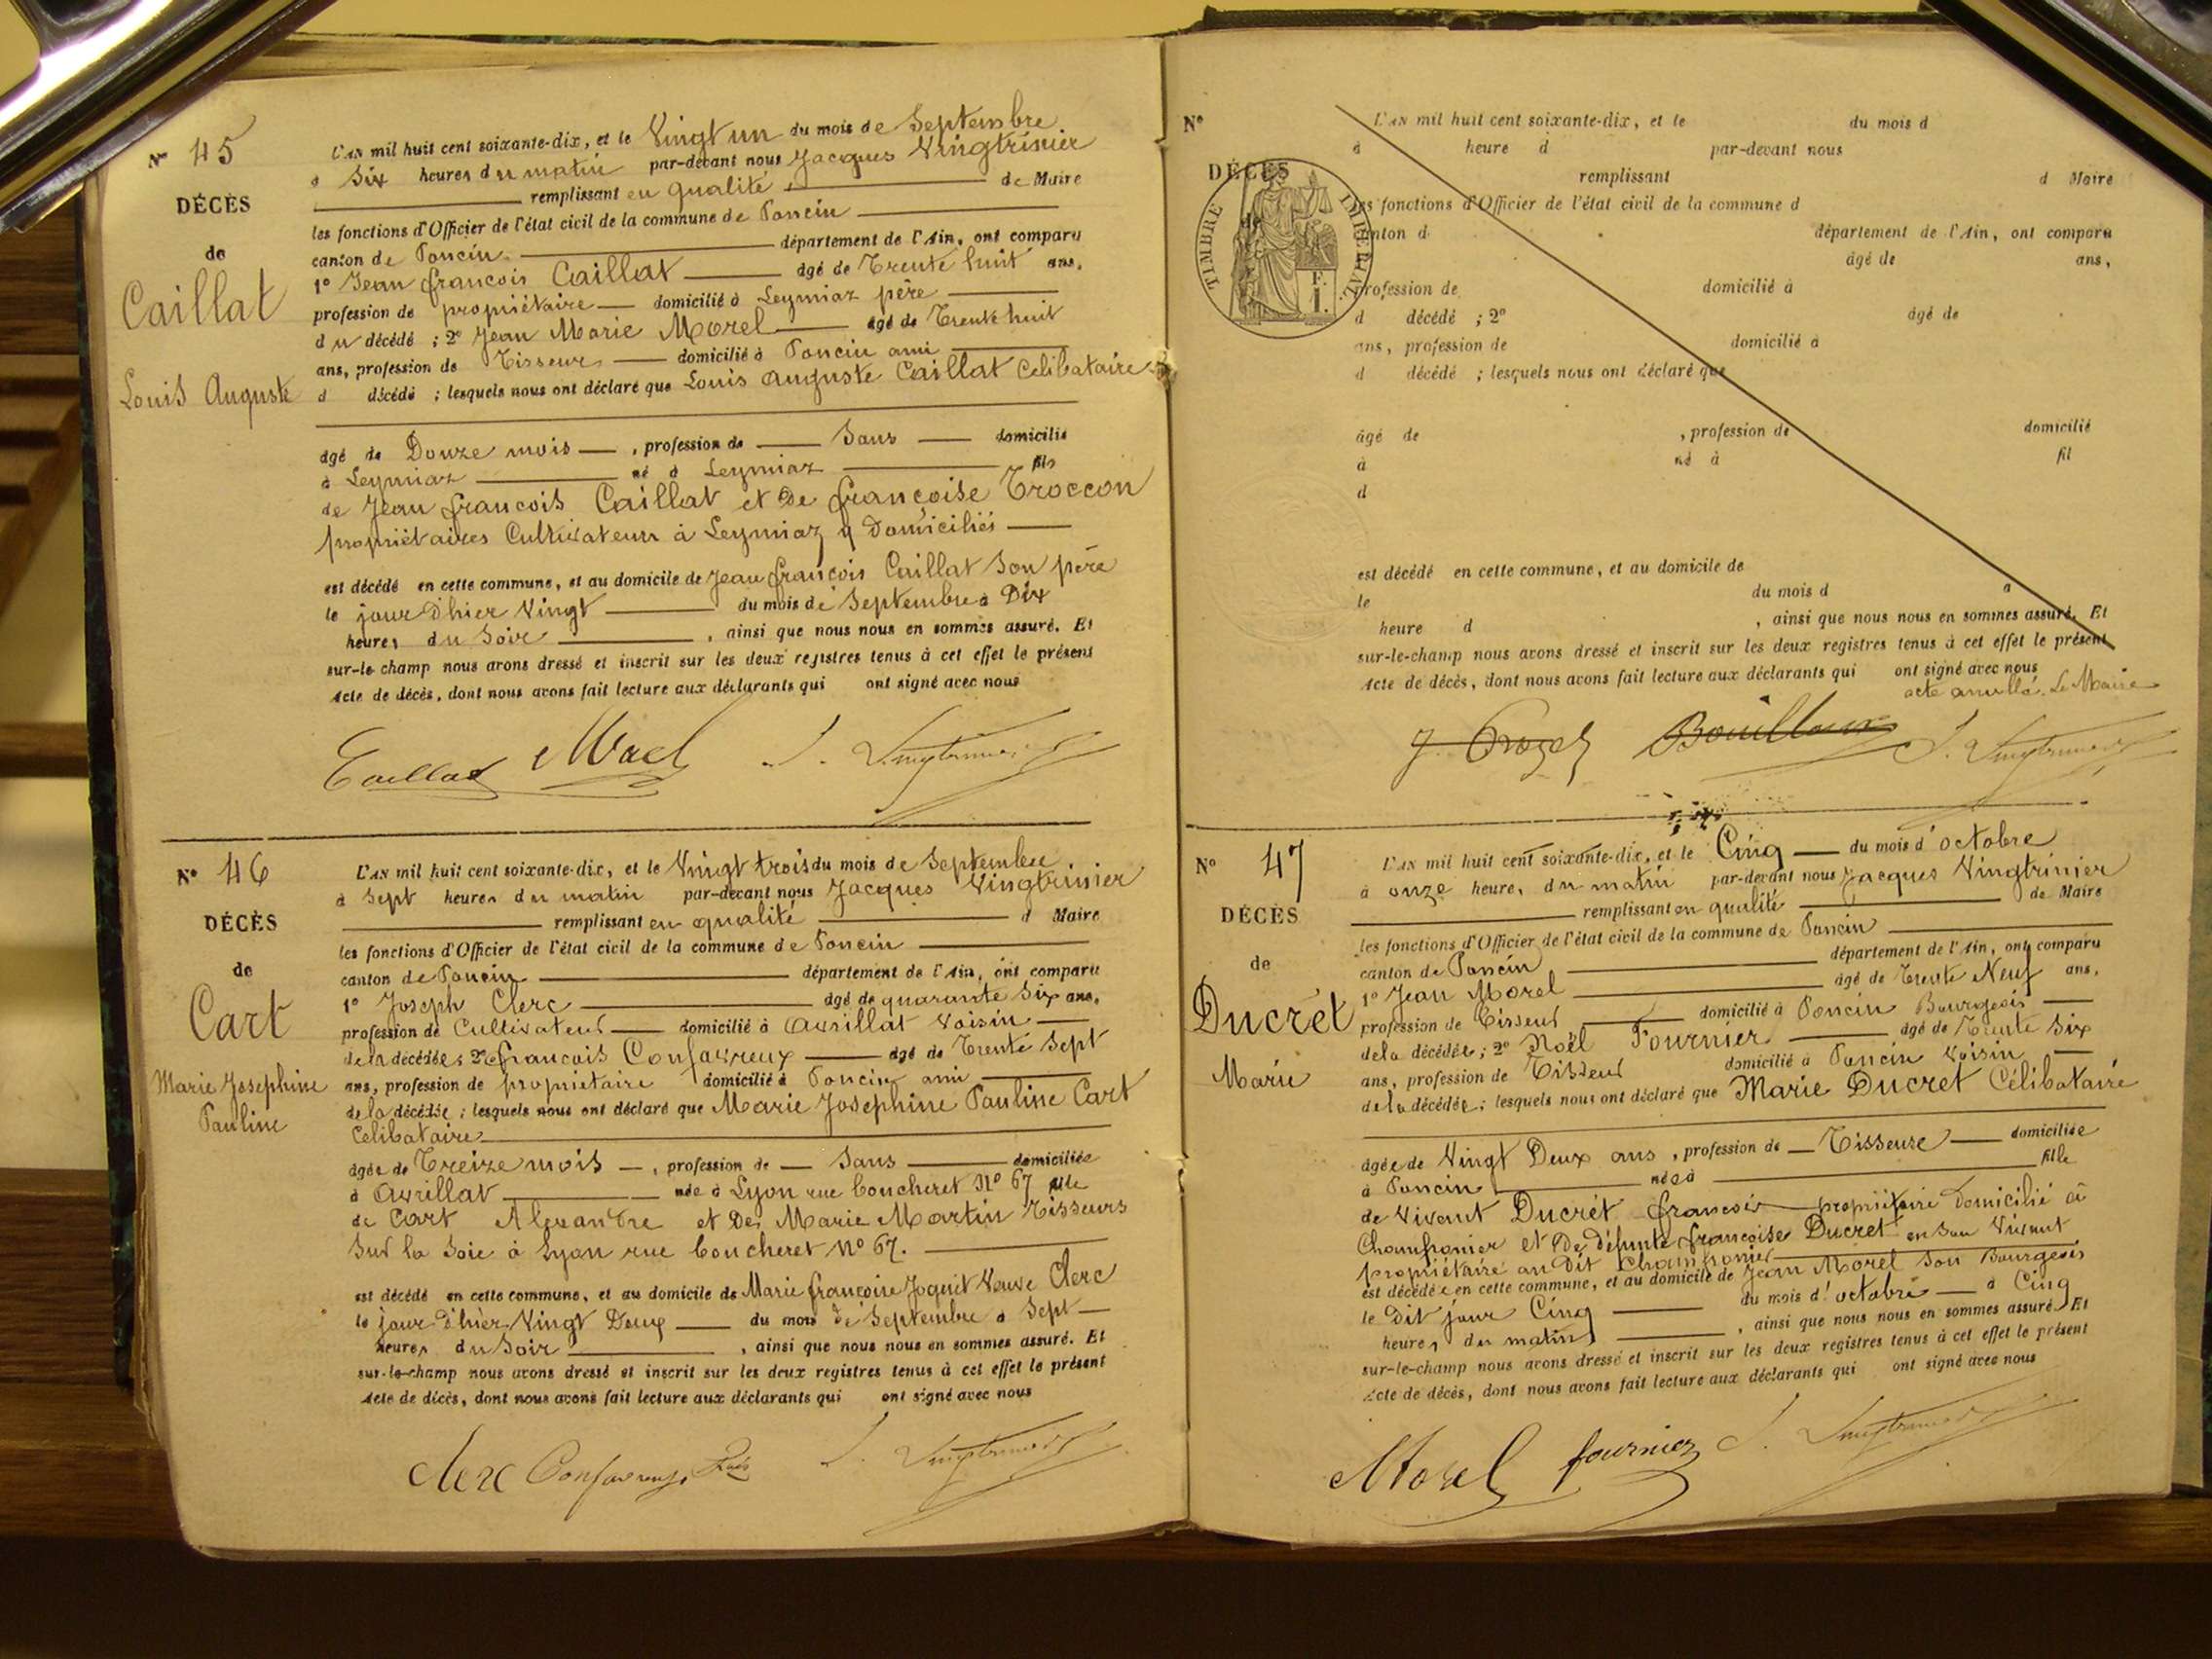 N° 45
DÉCÈS
de
Caillat
Louis Auguste
L'AN mil huit cent soixante-dix, et le Vingt un du mois de Septembre
à Six heures du matin par-devant nous Jacques Vingtrinier
remplissant en qualité de Maire
les fonctions d'Officier de l'état civil de la commune de Poncin
canton de Poncin département de l'Ain, ont comparu
1° Jean françois Caillat âgé de Trente huit ans,
profession de propriétaire domicilié à Leymiaz père
du décédé ; 2° Jean Marie Morel âgé de Trente huit
ans, profession de Tisseur domicilié à Poncin ami
d décédé ; lesquels nous ont déclaré que Louis Auguste Caillat Celibataire
âgé de Douze mois , profession de Sans domicilié
à Leymiaz né à Leymiaz fils
de Jean françois Caillat et De françoise Troccon
propriétaires Cultivateurs à Leymiaz y Domiciliés
est décédé en cette commune, et au domicile de Jean françois Caillat Son père
le jour D'hier Vingt du mois de Septembre à Dix
heures du Soir , ainsi que nous nous en sommes assuré. Et
sur-le-champ nous avons dressé et inscrit sur les deux registres tenus à cet effet le présent
Acte de décès, dont nous avons fait lecture aux déclarants qui ont signé avec nous
Caillat Morel J. Vingtrinier
N° 46
DÉCÈS
de
Cart
Marie Josephine
Pauline
L'AN mil huit cent soixante-dix, et le Vingt trois du mois de Septembre
à Sept heures du matin par-devant nous Jacques Vingtrinier
remplissant en qualité d Maire
les fonctions d'Officier de l'état civil de la commune de Poncin
canton de Poncin département de l'Ain, ont comparu
1° Joseph Clerc âgé de quarante Six ans,
profession de Cultivateur domicilié à Avrillat Voisin
de la décédée ; 2° francois Confavreux âgé de Trente Sept
ans, profession de propriétaire domicilié à Poncin ami
de la décédée ; lesquels nous ont déclaré que Marie Josephine Pauline Cart
Celibataire
âgée de Treize mois , profession de Sans domiciliée
à Avrillat née à Lyon rue Coucheret N° 67 fille
de Cart Alexandre et De Marie Martin Tisseurs
Sur la Soie à Lyon rue Coucheret N° 67.
est décédé en cette commune, et au domicile de Marie françoise Joguet Veuve Clerc
le jour D'hier Vingt Deux du mois de Septembre à Sept
heures du Soir , ainsi que nous nous en sommes assuré. Et
sur-le-champ nous avons dressé et inscrit sur les deux registres tenus à cet effet le présent
Acte de décès, dont nous avons fait lecture aux déclarants qui ont signé avec nous
Clerc Confavreux J. Vingtrinier
N°
DÉCÈS
TIMBRE IMPÉRIAL
L'AN mil huit cent soixante-dix, et le du mois d
à heure d par-devant nous
remplissant d Maire
les fonctions d'Officier de l'état civil de la commune d
canton d département de l'Ain, ont comparu
âgé de ans,
profession de domicilié à
d décédé ; 2° âgé de
ans, profession de domicilié à
d décédé ; lesquels nous ont déclaré que
âgé de , profession de domicilié
à né à fil
d
est décédé en cette commune, et au domicile de
le du mois d à
heure d , ainsi que nous nous en sommes assuré. Et
sur-le-champ nous avons dressé et inscrit sur les deux registres tenus à cet effet le présent
Acte de décès, dont nous avons fait lecture aux déclarants qui ont signé avec nous
acte anullé. Le Maire
Bouilloux J. Vingtrinier
N° 47
DÉCÈS
de
Ducrét
Marie
L'AN mil huit cent soixante-dix, et le Cinq du mois d'octobre
à onze heures du matin par-devant nous Jacques Vingtrinier
remplissant en qualité de Maire
les fonctions d'Officier de l'état civil de la commune de Poncin
canton de Poncin département de l'Ain, ont comparu
1° Jean Morel âgé de Trente Neuf ans,
profession de Tisseur domicilié à Poncin Bourgeois
de la décédée ; 2° Noël Fournier âgé de Trente Six
ans, profession de Tisseur domicilié à Poncin Voisin
de la décédée ; lesquels nous ont déclaré que Marie Ducret Célibataire
âgée de Vingt Deux ans , profession de Tisseuse domiciliée
à Poncin née à fille
de Vivant Ducrét francois propriétaire Domicilié à
Champanier et De défunte françoise Ducret en Son Vivant
propriétaire au Dit Champanier
est décédée en cette commune, et au domicile de Jean Morel Son Bourgeois
le Dit jour Cinq du mois d'octobre à Cinq
heures du matin , ainsi que nous nous en sommes assuré. Et
sur-le-champ nous avons dressé et inscrit sur les deux registres tenus à cet effet le présent
Acte de décès, dont nous avons fait lecture aux déclarants qui ont signé avec nous
Morel fournier J. Vingtrinier